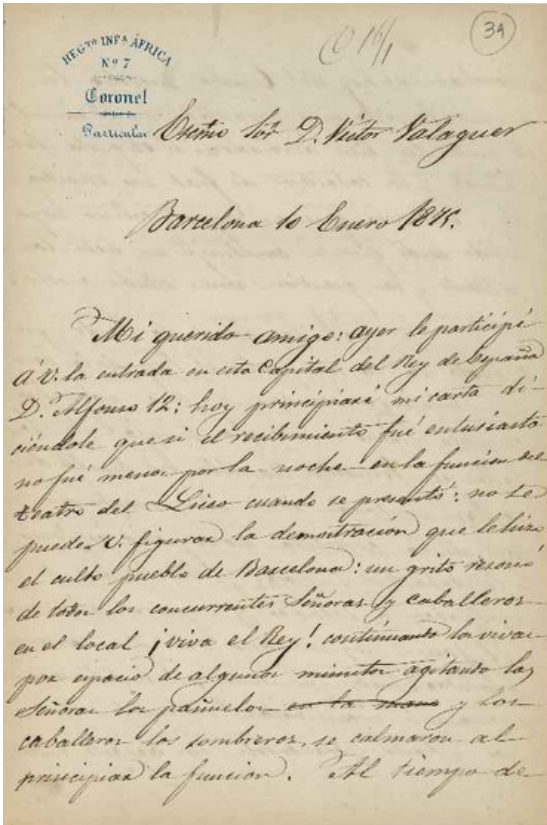 34
O 16/1
REGTO INFA ÁFRICA
Nº 7
Coronel
Particular
Exmo Sor D. Victor Valaguer
Barcelona 10 Enero 1875.
Mi querido amigo: ayer le participé
á V. la entrada en esta Capital del Rey de España
D. Alfonso 12: hoy principiaré mi carta di-
ciéndole que si el recibimiento fué entusiasta
no fué menor por la noche en la funcion del
teatro del Liceo cuando se presentó: no se
puede V. figurar la demostracion que le hizo
el culto pueblo de Barcelona: un grito resonó
de todos los concurrentes Señoras y caballeros
en el local ¡viva el Rey! continuando los vivas
por espacio de algunos minutos agitando las
Señoras los pañuelos en la mano y los
caballeros los sombreros, se calmaron al
principiar la funcion. Al tiempo de